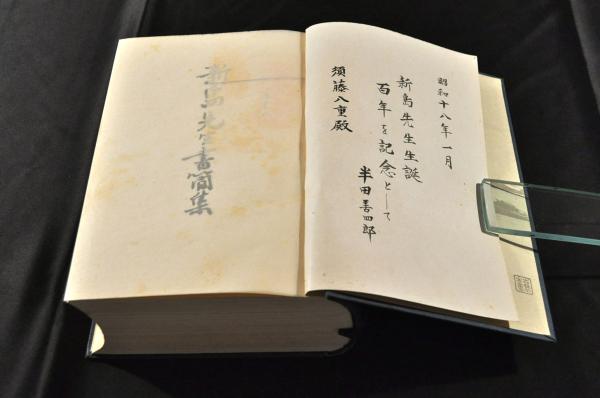 昭和十八年一月
新島先生生誕
百年を記念として
半田善四郎
須藤八重殿
新島先生書簡集